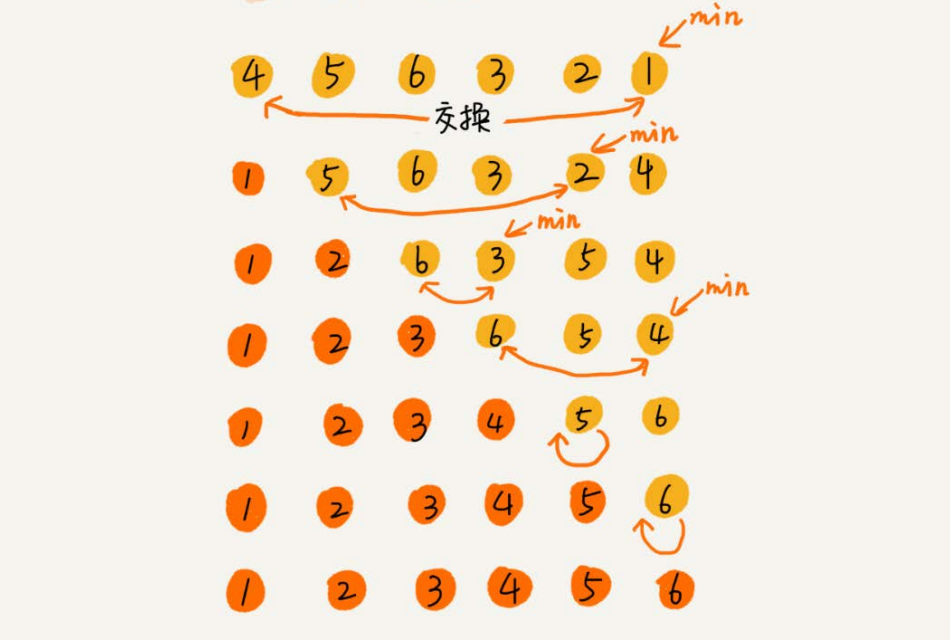 min
4 5 6 3 2 1
交换
min
1 5 6 3 2 4
min
1 2 6 3 5 4
min
1 2 3 6 5 4
1 2 3 4 5 6
1 2 3 4 5 6
1 2 3 4 5 6